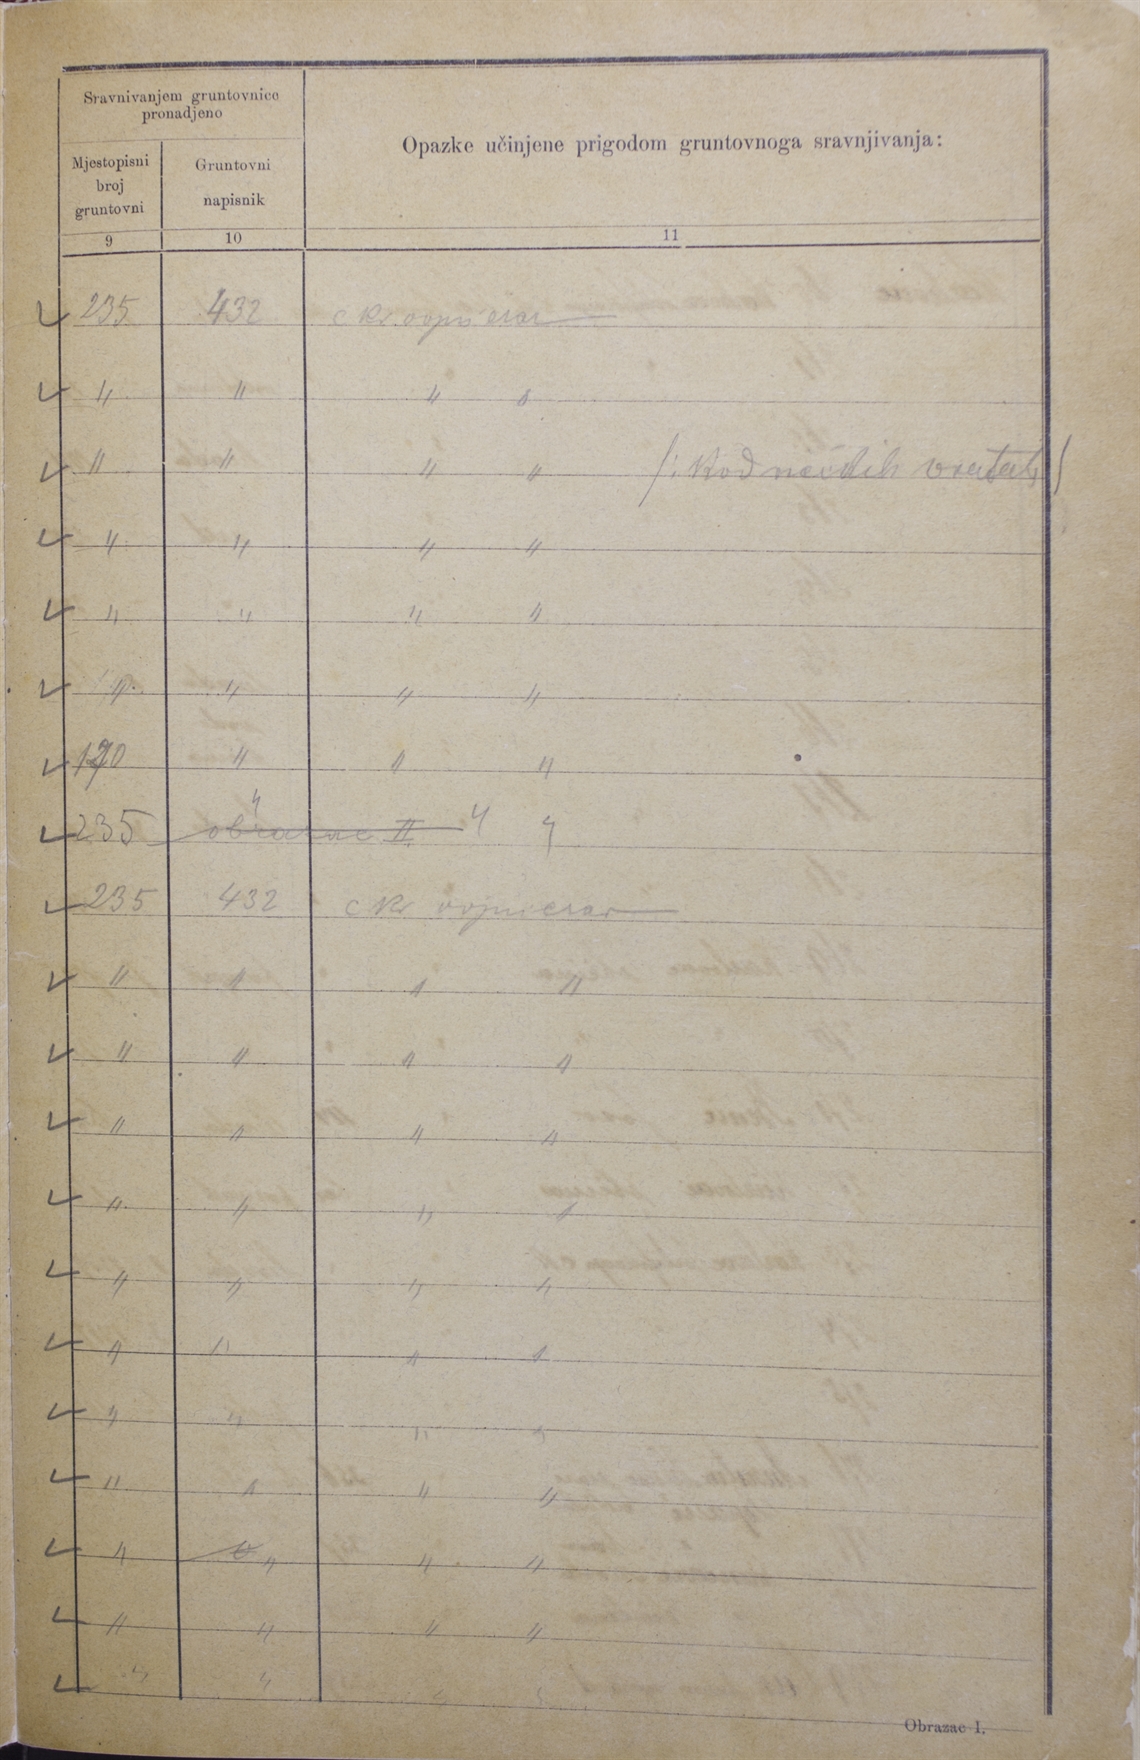 Sravnivanjem gruntovnice
pronadjeno
Opazke učinjene prigodom gruntovnoga sravnjivanja:
Mjestopisni
broj
gruntovni
Gruntovni
napisnik
9 10 11
235 432 c kr. vojni erar
" " " "
" " " " /: Kod
" " " "
" " " "
" " " "
" " "
" " "
235 obrazac II
235 432 c kr vojni erar
" " " "
" " " "
" " " "
" " " "
" " " "
" " " "
" " " "
" " " "
" " " "
" " " "
" " " "
Obrazac I.